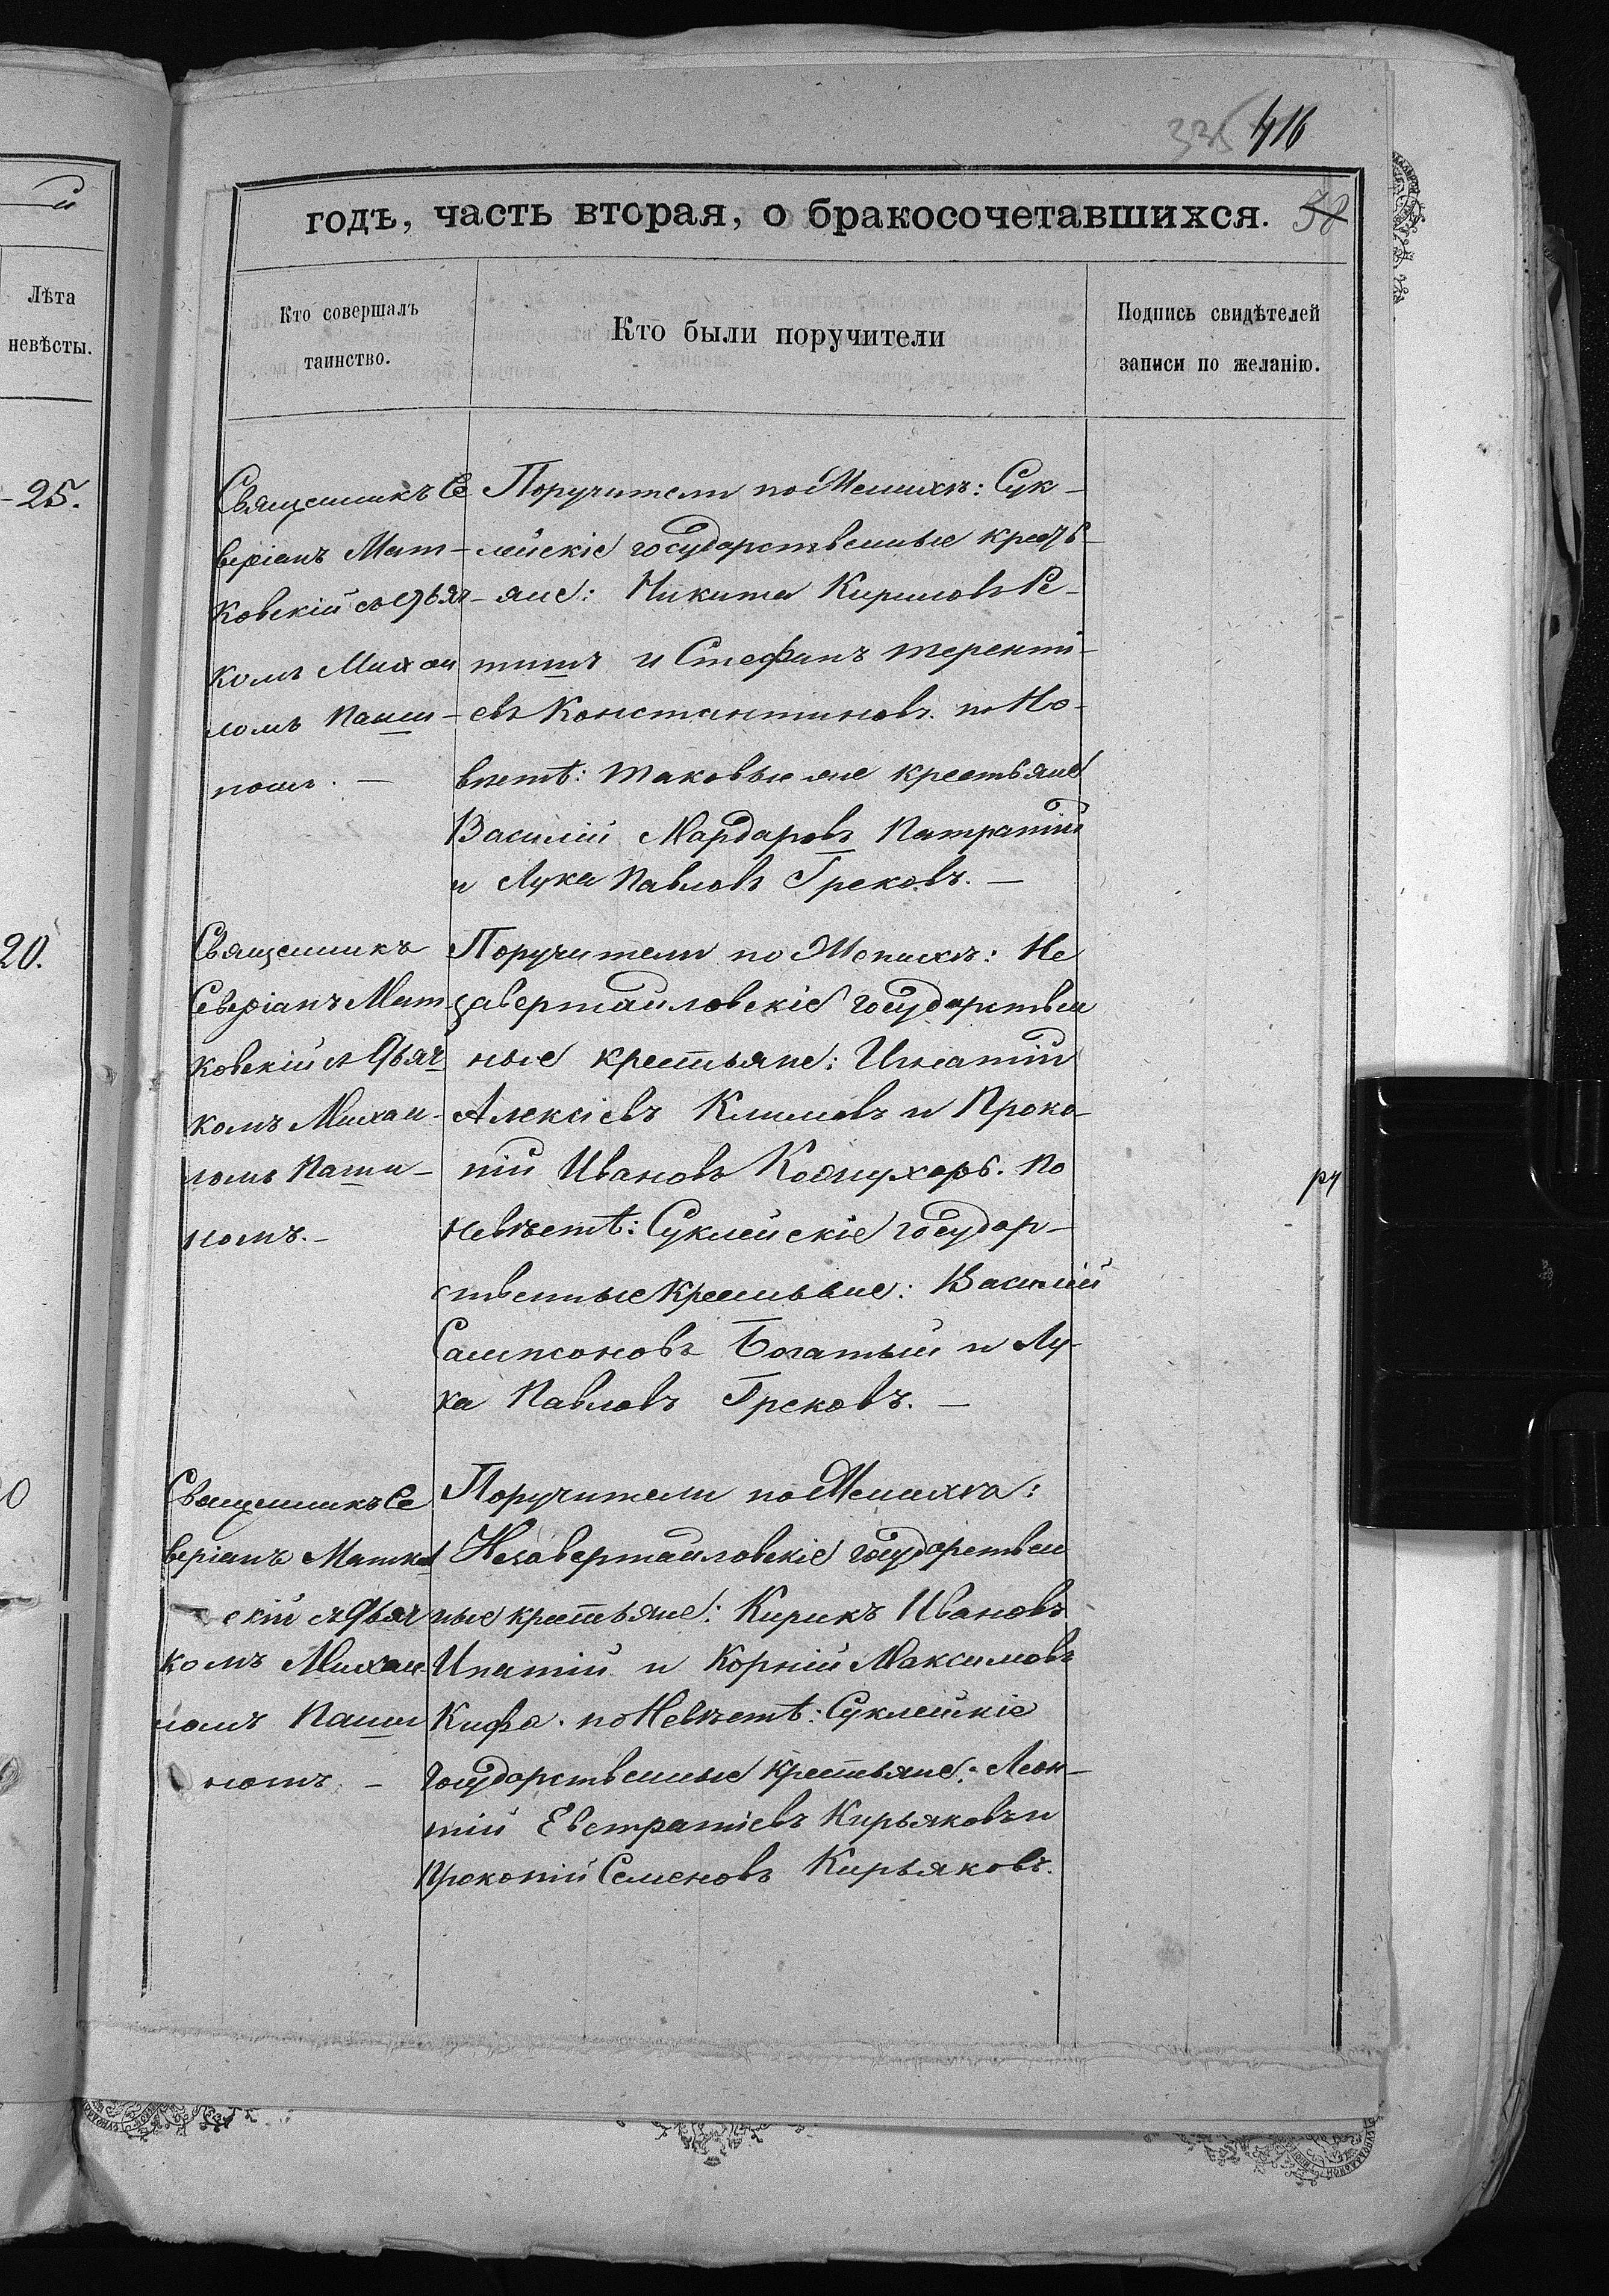 416
годъ, часть вторая, о бракосочетавшихся. 38
Лѣта
невѣсты.
Кто совершалъ
таинство.
Кто были поручители
Подпись свидѣтелей
записи по желанію.
25.
Священникъ Се
веріанъ Мат-
ковскій съ Дьяч-
комъ Михаи
ломъ Паши-
номъ. —
Поручители по Женихѣ: Сук-
лейскіе государственные кресть-
яне: Никита Кириловъ Ре-
тишъ и Стефанъ Теренті-
евъ Константиновъ. по Не-
вѣстѣ: таковые же крестьяне
Василій Мардаровъ Патратій
и Лука Павловъ Грековъ. —
20.
Священникъ
Северіанъ Мат-
ковскій съ Дьяч-
комъ Михаи-
ломъ Паши-
номъ. —
Поручители по Женихѣ: Не
завертайловскіе государствен
ные крестьяне: Игнатій
Алексіевъ Климовъ и Проко-
пій Ивановъ по
невѣстѣ: Суклейскіе государ-
ственные крестьяне: Василій
Сампсоновъ Богатый и Лу-
ка Павловъ Грековъ. —
0
Священникъ Се
веріанъ Матков
скій съ Дьяч
комъ Михаи-
ломъ Паши
номъ. —
Поручители по Женихѣ:
Незавертайловскіе государствен
ные крестьяне: Кирикъ Ивановъ
Ипатій и Корній Максимовъ
Кифа. по Невѣстѣ: Суклейскіе
государственные крестьяне: Леон-
тій Евстратіевъ Кирьяковъ и
Прокопій Семеновъ Кирьяковъ.